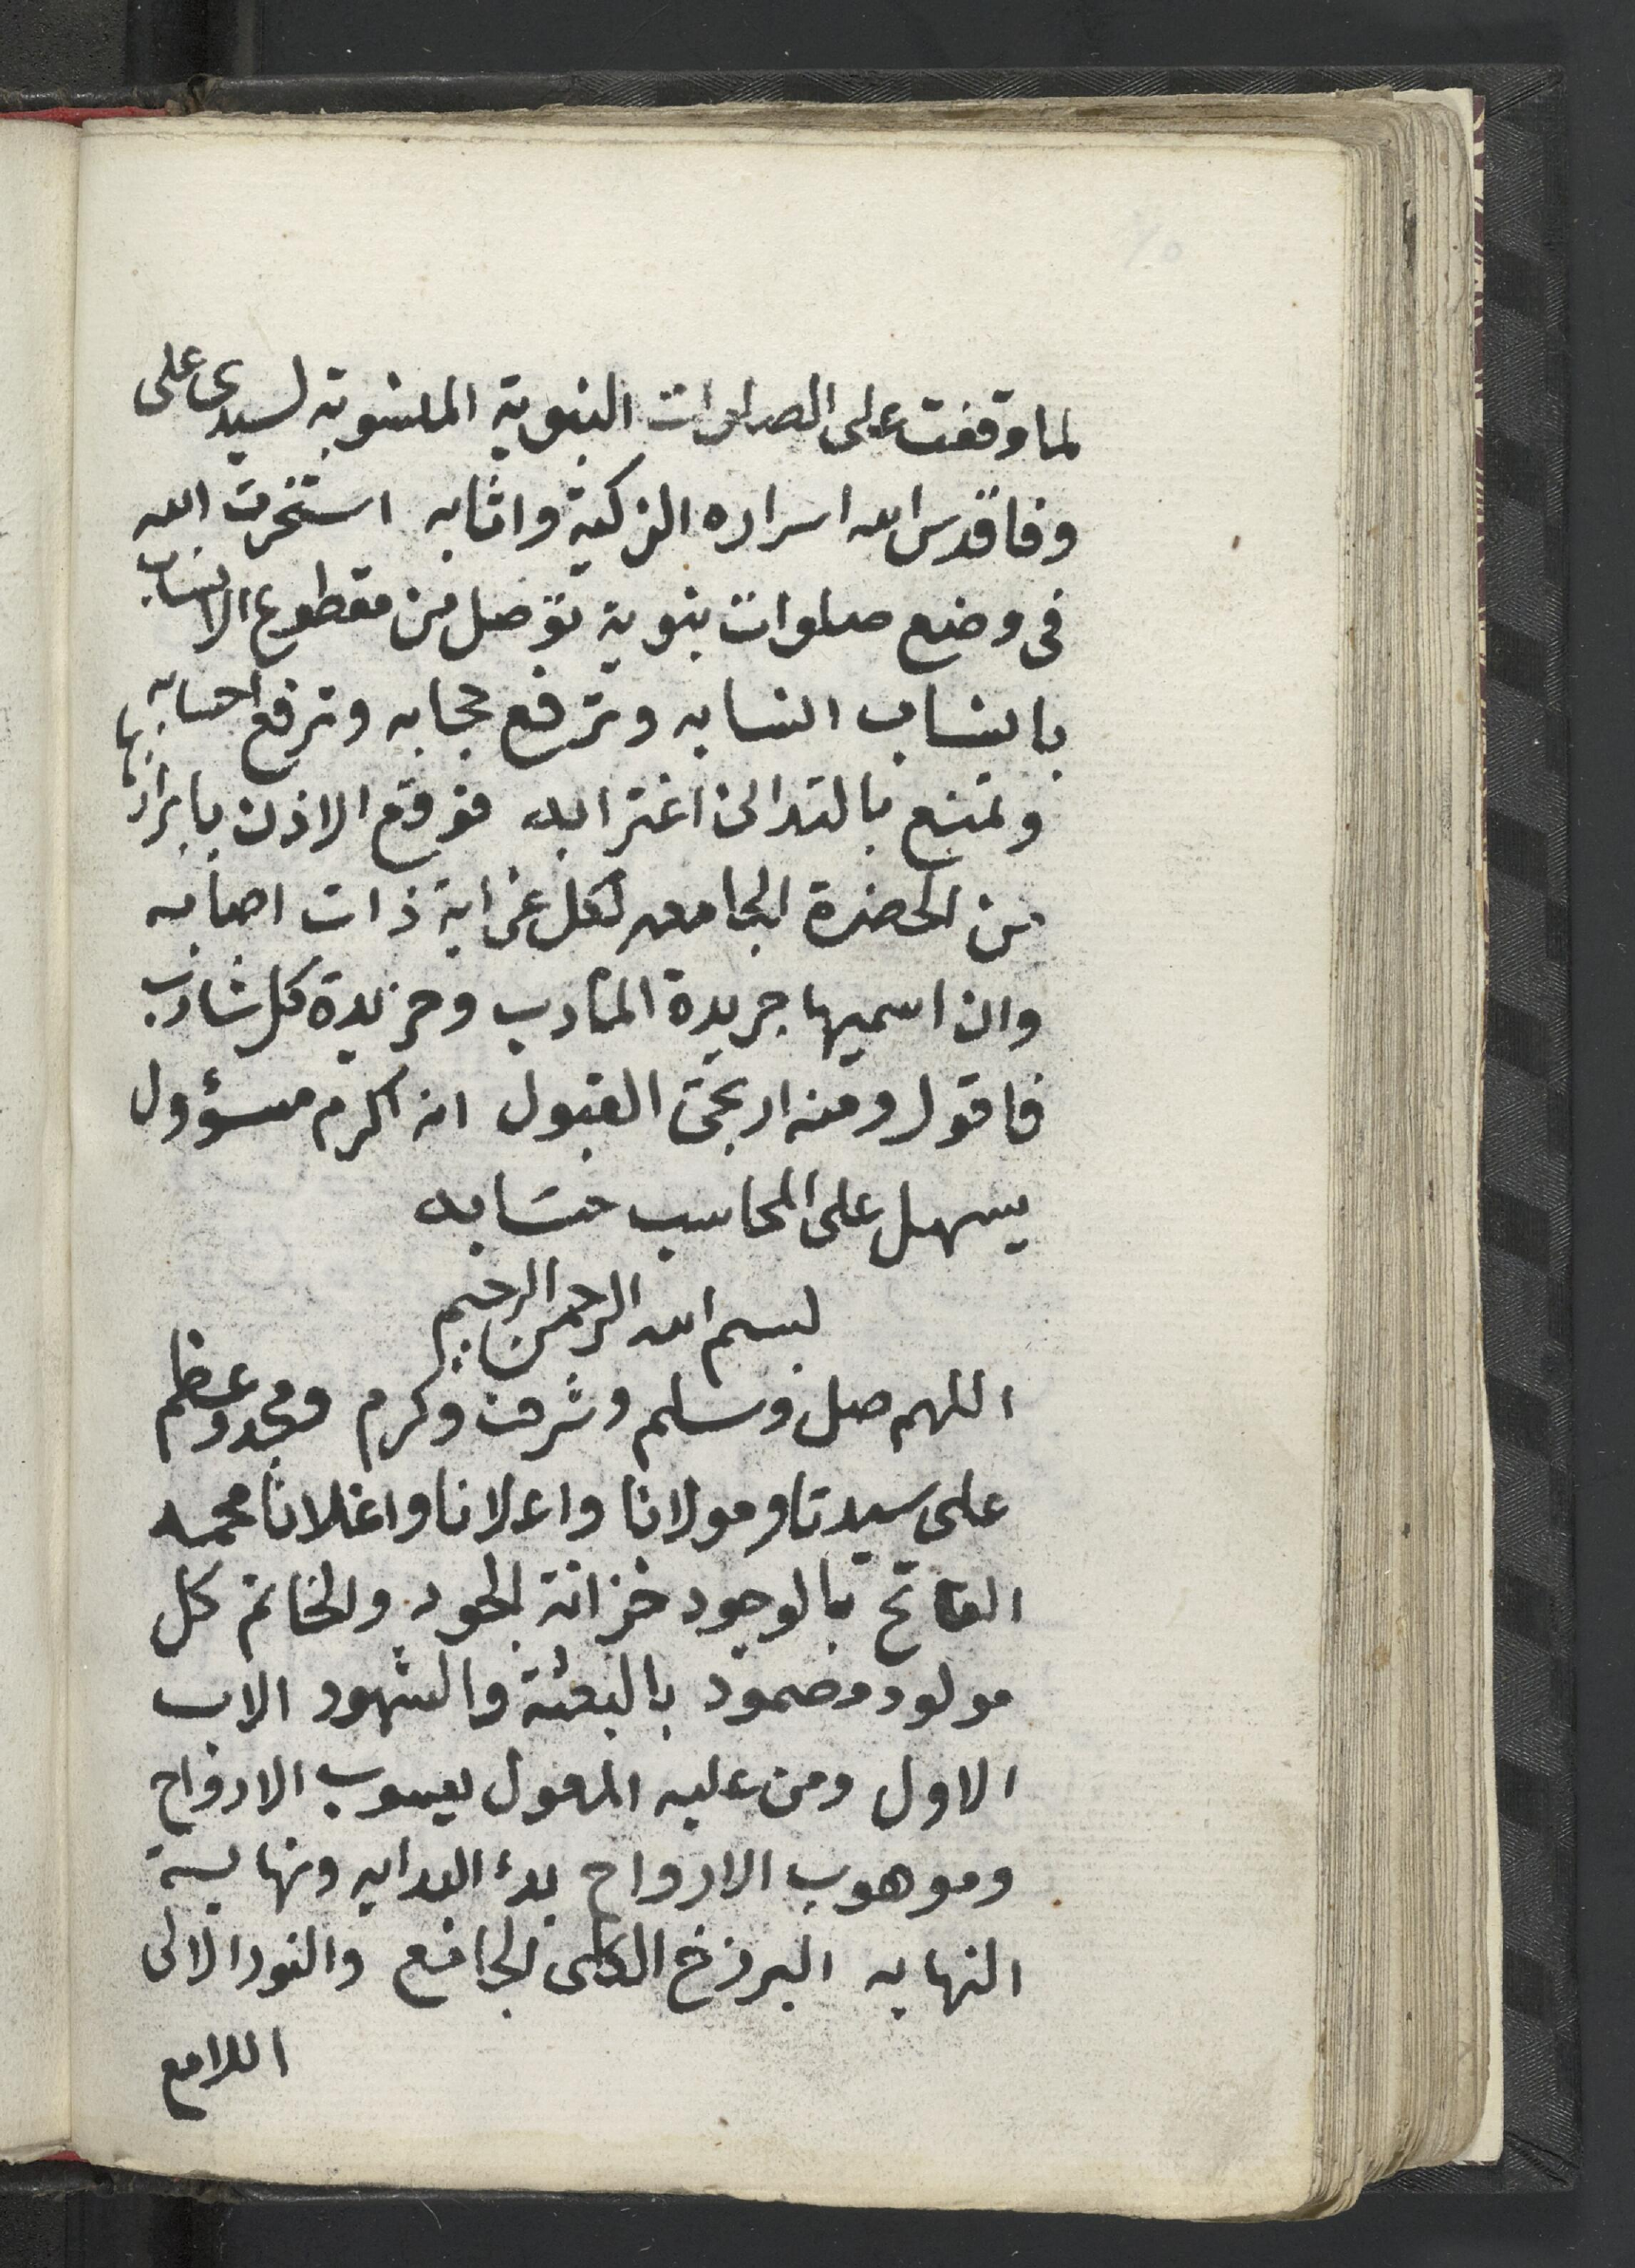 لما وقفت على الصلوات النبوية المنسوبة لسيدى على
وفا قدس الله اسراره الزكية واثابه استخرت الله
فى وضع صلوات نبوية توصل من مقطوع الانساب
بانساب انسابه وترفع حجابه وترفع احسابه
وتمنع بالتدانى اغترابه فوقع الاذن بابرازها
من الحضرة الجامعه لكل غرابة ذات اصابه
وان اسميها جريدة المآدب وخريدة كل شادب
فاقول ومنه ارتجى القبول انه اكرم مسؤول
يسهل على المحاسب حسابه
بسم الله الرحمن الرحيم
اللهم صل وسلم وشرف وكرم ومجد وعظم
على سيدنا ومولانا واعلانا واغلانا محمد
الفاتح بالوجود خزانة الجود والخاتم كل
مولود مضمود بالبعثة والشهود الاب
الاول ومن عليه المعول يعسوب الارواح
وموهوب الارواح بدء البدايه ونهاية
النهايه البرزخ الكلى الجامع والنور الالى
اللامع